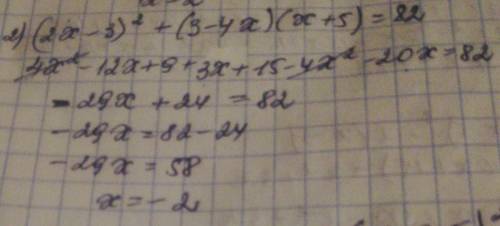 2) (2x-3)² + (3-4x)(x+5) = 82
4x² - 12x + 9 + 3x + 15 - 4x² - 20x = 82
- 29x + 24 = 82
- 29x = 82 - 24
- 29x = 58
x = - 2